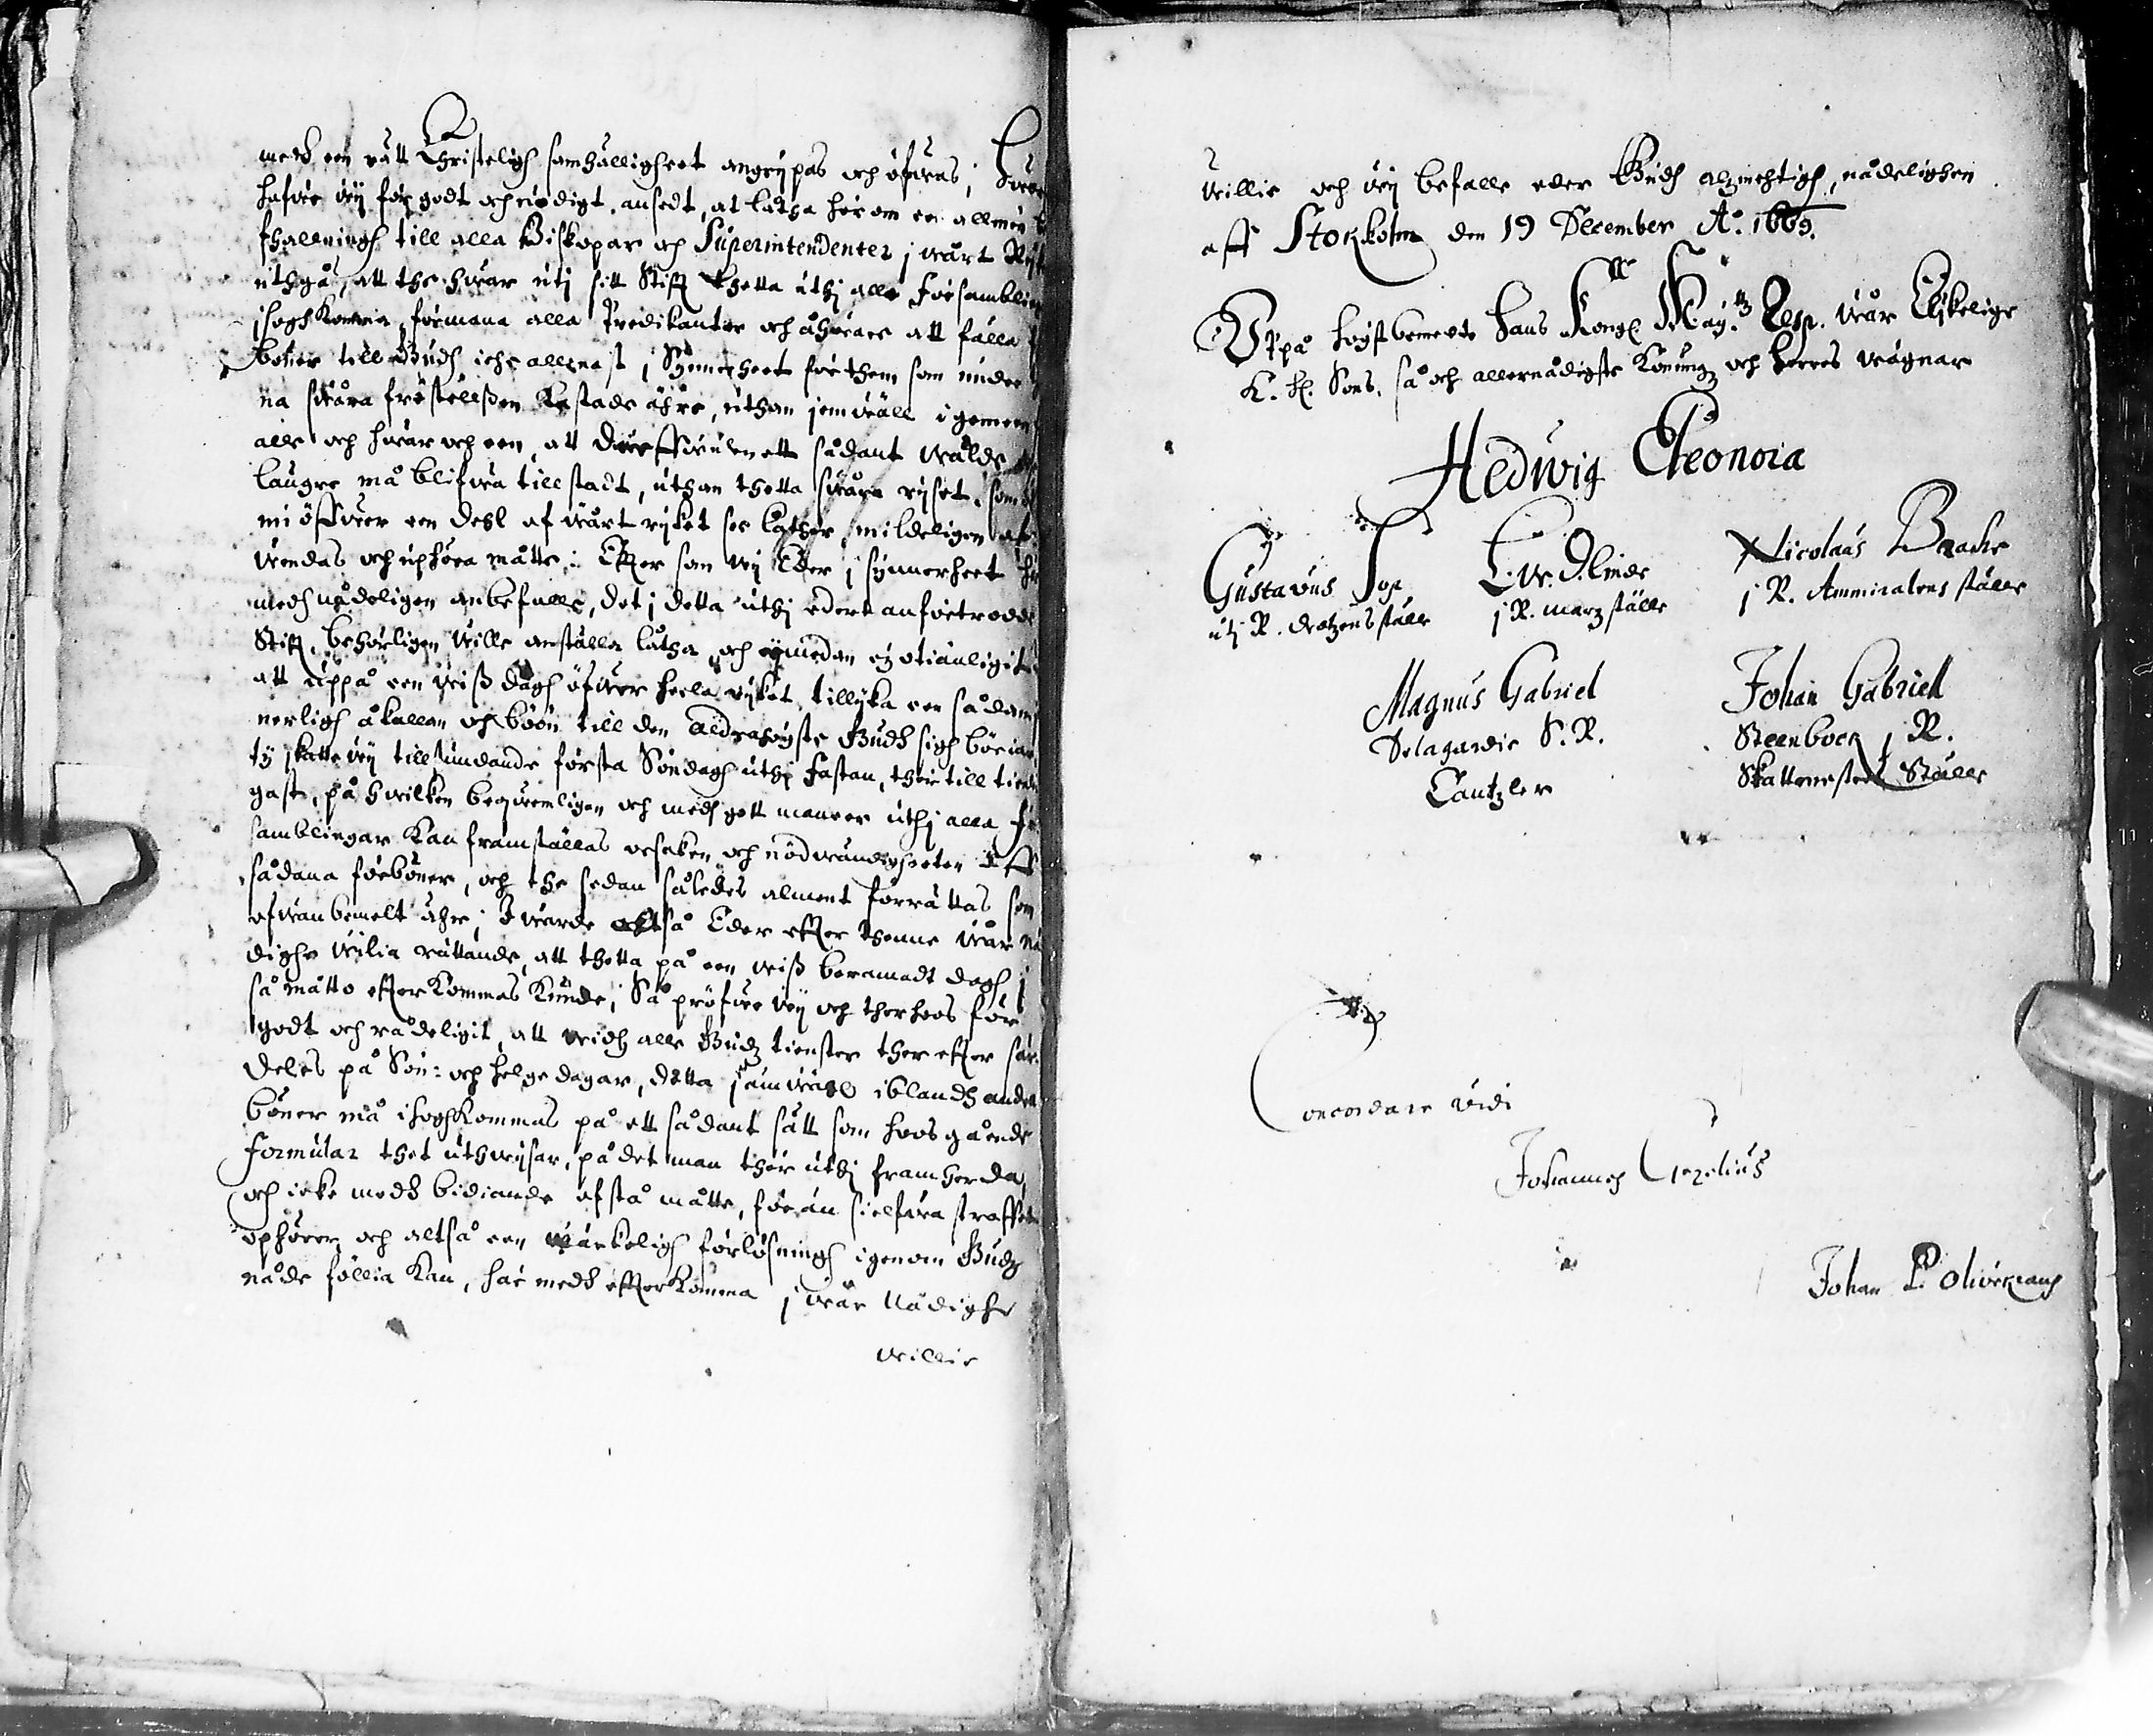 medh een rätt Christeligh samhälligheet angrypas och öfwas; 
hafwe wij för godt och nödigt ansedt, at låtha her om en allmen
fhallningh till alla Biskopar och Superintendenter j wårt Ryke
uthgå, att the hwar utj sitt Stifft thetta uthj alle Församblin
ihogh komma, förmana alla Predikanter och åhörare att fälla
böner till Gudh icke allenast j Synnerheet för them som under
na swåra frestellßen kastade ähre, uthan jemwäll i gemeen
alle och hwar och een, att dieffwulen ett sådant wälde
längre må blifwa tillstadt, uthan thetta swåra ryset, som
mi öffwer een deel af wårt ryket see låther, mildeligen af
wendas och uphöra måtte; Effter som wij Eder j synnerheet
medh nådeligen anbefalle, det j detta uthj edert anförtrodde
Stifft behörligen wille anställa låtha, och eij otiänligit
att uppå een wiß dagh öfwer heela ryket tillyka een sådan
nerligh åkallan och böön till den Aldrahögste Gudh sigh börian
ty skatte wij tillstundande första Söndagh uthj Fastan, ther till tien
gast, på hwilken beqwemligen och medh gott maneer uthj alla För
samblingar kan framställas orsaken och nödwändigheeten aff
sådana förböner, och the sedan således alment förrättas som
ofwanbemelt ähr; J warde altså Eder effter thenne wår nå
dighe wilia rättande, att thetta på een wiß beramadt dagh j
så måtto effterkommas kunde; Så pröfwe wij och therhoos för
godt och rådeligit, att widh alle Gudz tienster ther effter sär-
deles på Sön: och helgedagar, detta jämwäll iblandh andra
böner må ihoghkommas på ett sådant sätt som hoosgående
Formular thet uthwysar, på det man ther uthj framherda,
och icke medh bidiande afstå måtte, för än sielfwa straffet
ophörer, och altså een märkeligh förlösningh igenom Gudz
nåde föllia kan, här medh effterkomma j wår Nådighe
willie
willie och wij befalle eder Gudh alzmechtigh, nådelighen
aff Stokholm den 19 December Ao. 1669.
Uppå högstbemelte Hans Kongl. May:tz Resp. wår Elskelige
K. H. Sons, så och allernådigste Konungz och Herres wägnar
Hedwig Eleonora
Gustavus Sop
utj R. Drotzens ställe
j R. marz ställe
Nicolaus Brahe
j R. Ammiralens ställe
Magnus Gabriel
Delagardie S. R.
Cantzler
Johan Gabriell
Steenbock j R.
Skattmester Ställe
Concordare vidi
Johannes Gezelius
Johan P. Olivecrantz